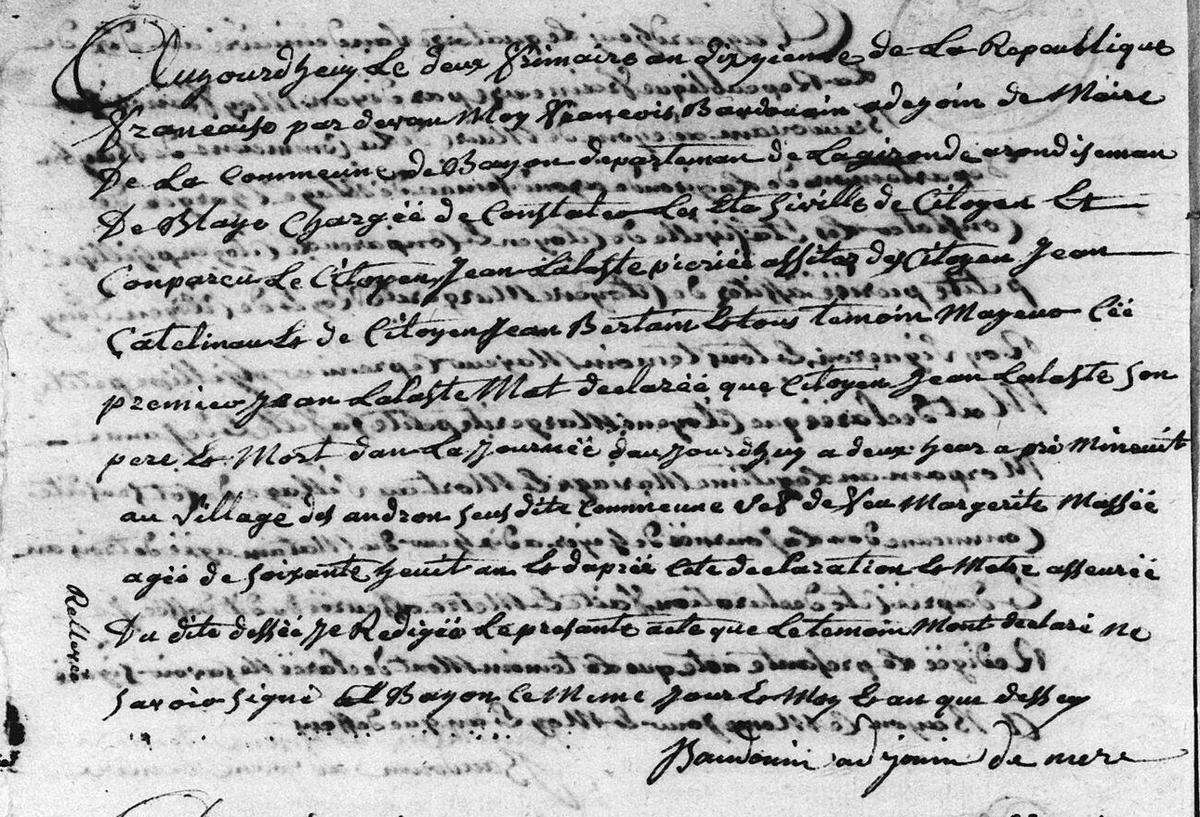 Aujourdheuy Le deux frimaire an dixzieme de La Republique
francaise par devan Moy francois Baudouain adejoin de Maire
De La Commeune de Bayon departeman de La gironde arondiseman
De Blaye Chargéé de Constater Les Eta Siville de Citoyen Et
Conpareu Le Citoyen Jean Lalaste assites de Citoyen Jean
Catelinau Et de Citoyen Jean Bertain Et tous temoin Mageuo Léé
premier Jean Lalaste Mat declaréé que Citoyen Jean Lalaste Son
pere Et Mort dan La Journéé daujourdhuy a deux hear a pré Mineuit
au Village des andron seus dite Commeune Vef de feu Margerite Masséé
agéé de Soixante heuit an Et dapréé Cete declaration Et Metre asseuréé
Du dite desséé Je Redigéé Le presante acte que Le temoin Mont declaré ne
Savoir Signé a Bayon Le Meme Jour Et Moy Et an que dessey
Baudouin ad join de mere
Rellevéé